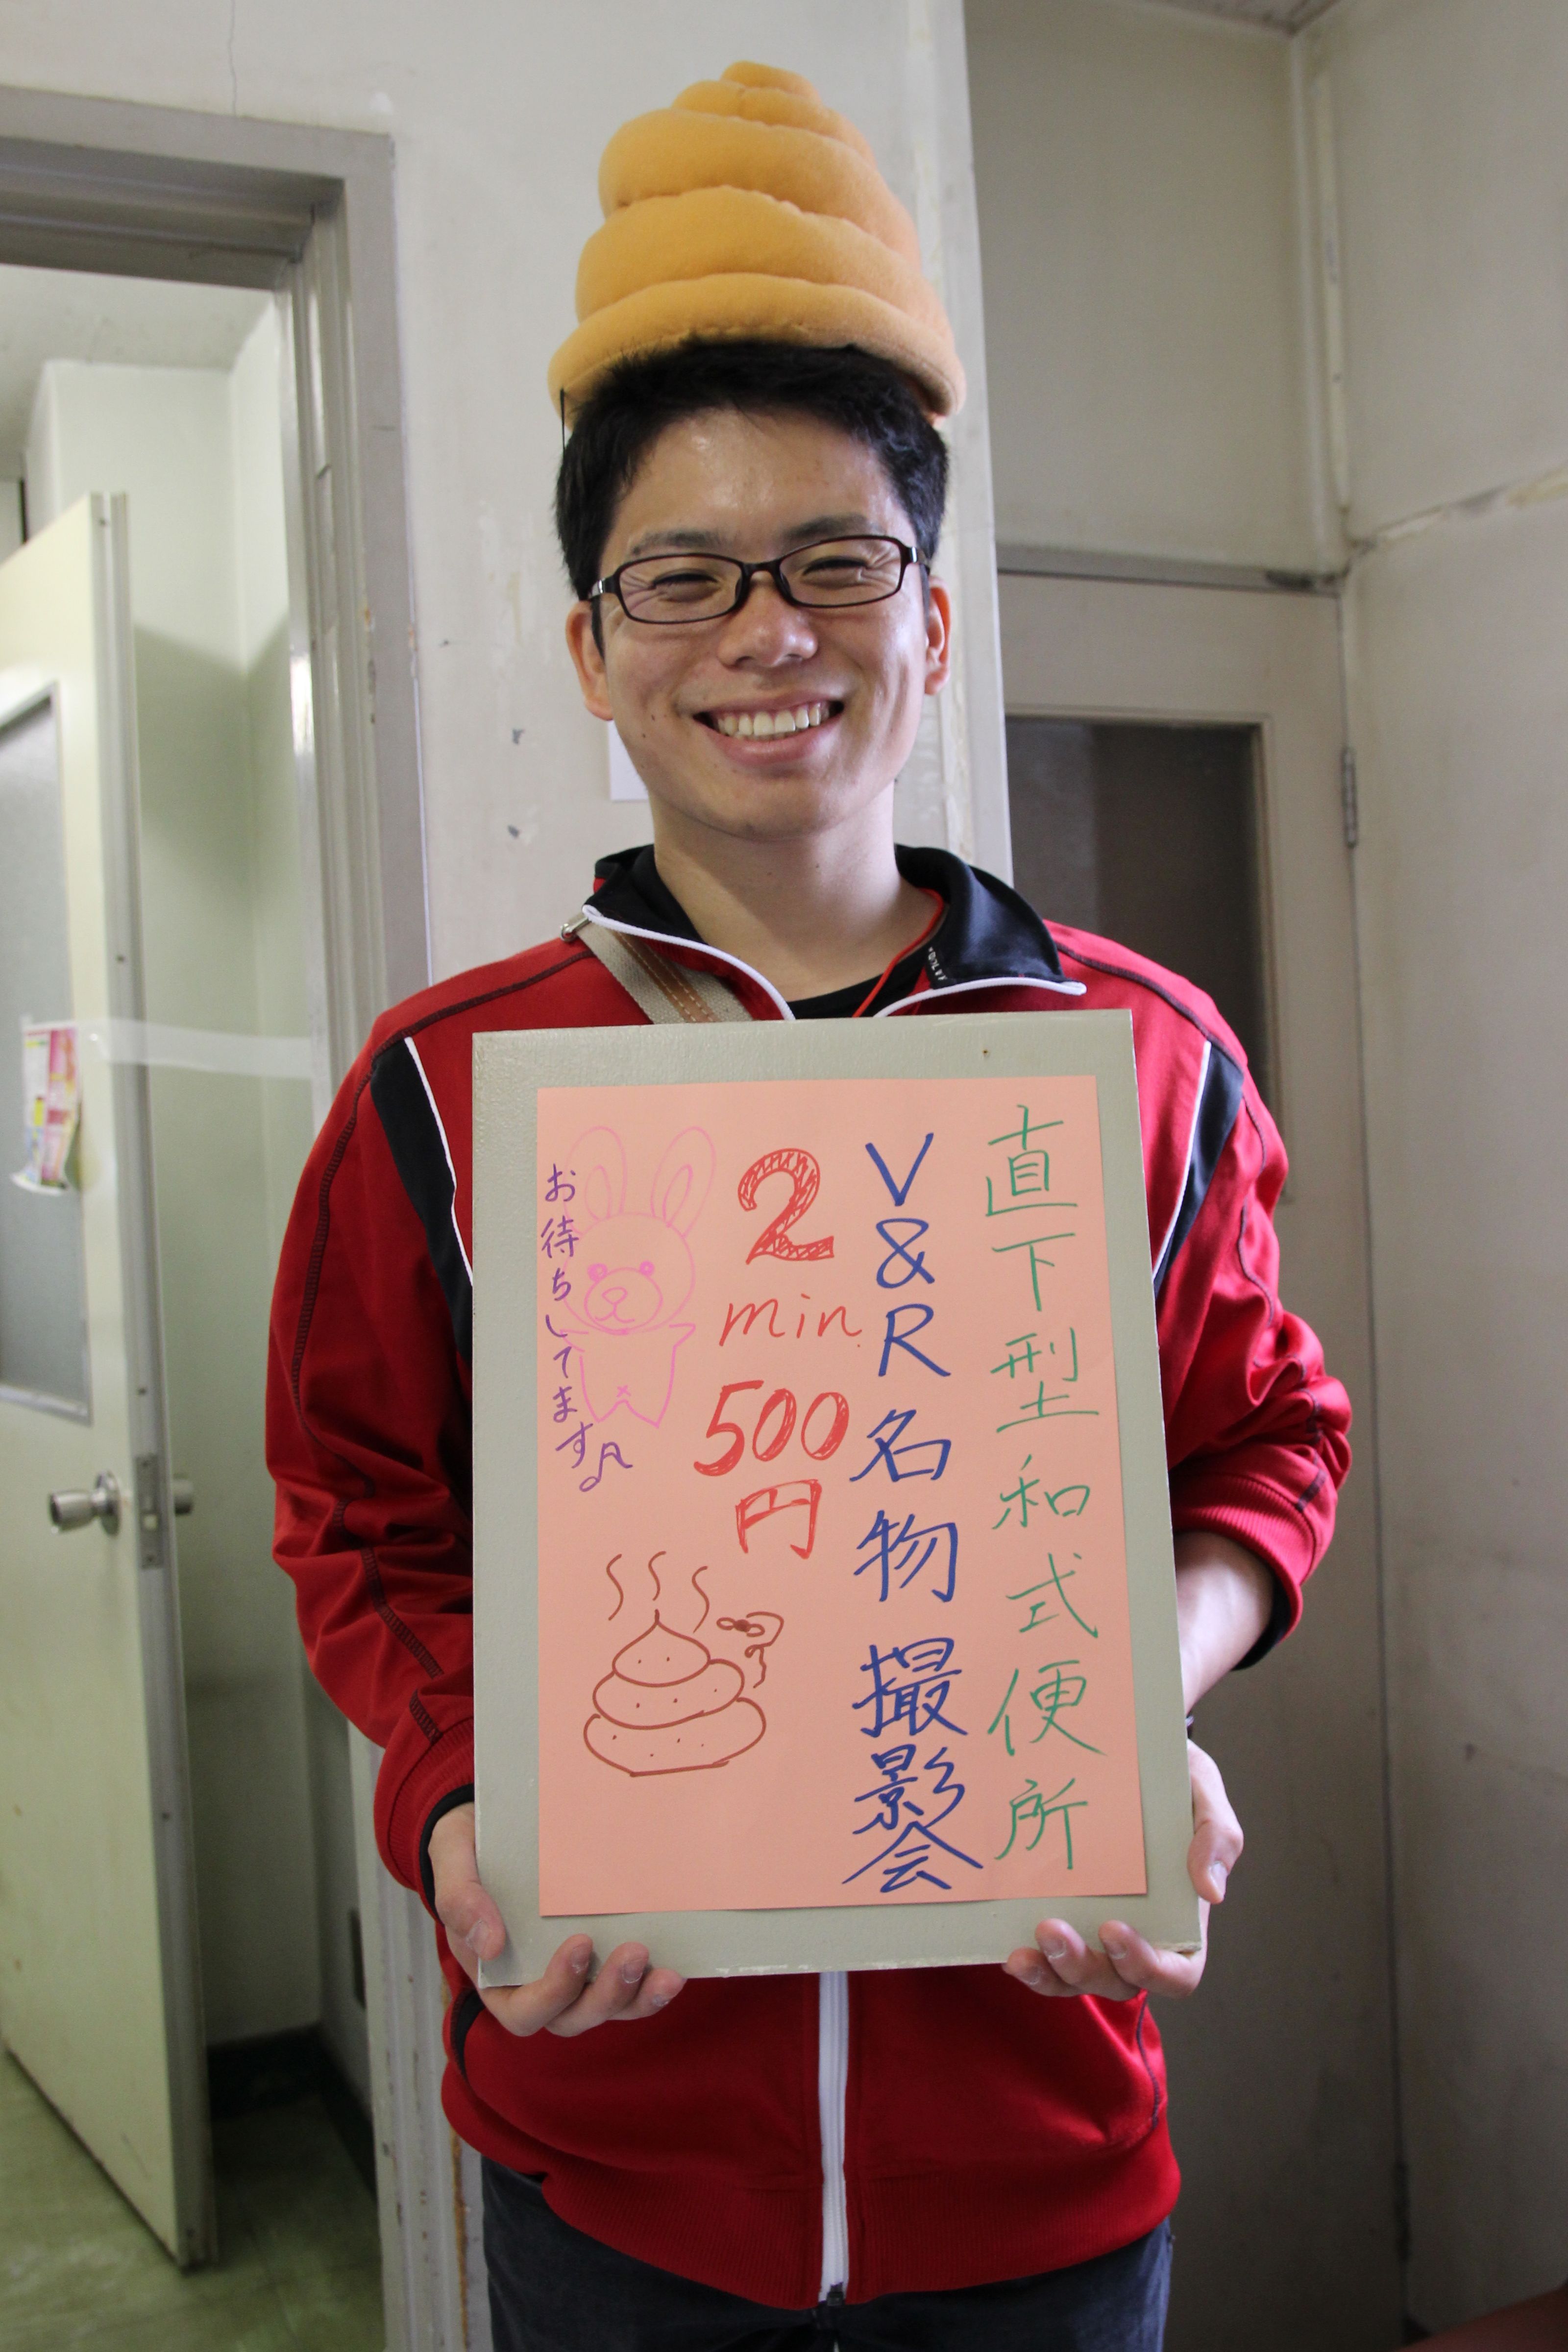 直下型和式便所
V&R名物撮影会
2
min
500
円
お待ちしてます♪